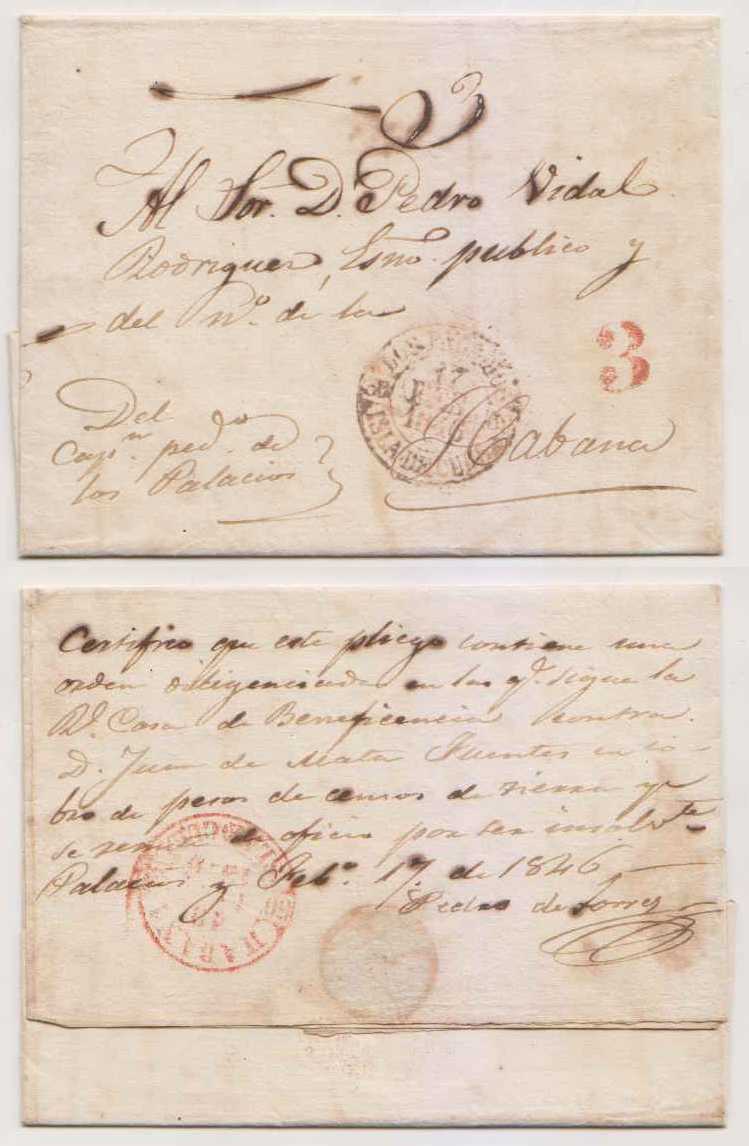 Al Sor. D. Pedro Vidal
Rodriguez, Esno. publico y
del no. de la
Habana
3
Del
Capn. pedo. de
los Palacios
17
ISLA DE CUBA
Certifico que este pliego contiene una
orden diligenciada en las q. sigue la
Rl. Casa de Beneficencia contra
D. Juan de Mata Fuentes en co-
bro de pesos de censos de tierra y
se remite de oficio por ser insolvte.
Palacios y Febo. 17 de 1846
Pedro de Torres